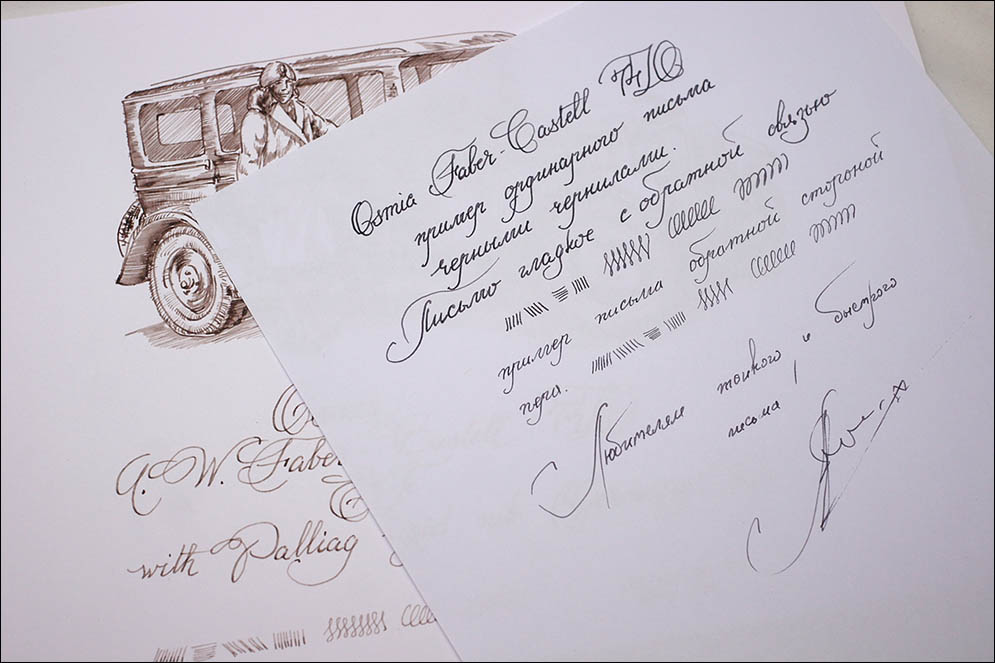 Osmia Faber-Castell
пример ординарного письма
черными чернилами.
Письмо гладкое с обратной связью
пример письма обратной стороной
пера.
Любителям тонкого и быстрого
письма!
A. W. Faber
with Palliag